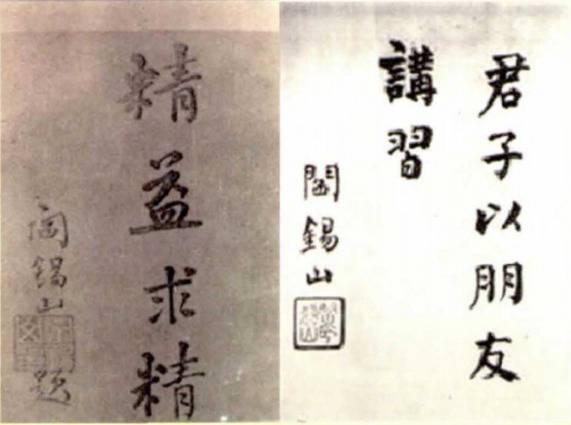 君子以朋友
講習
閻錫山
精益求精
閻錫山題